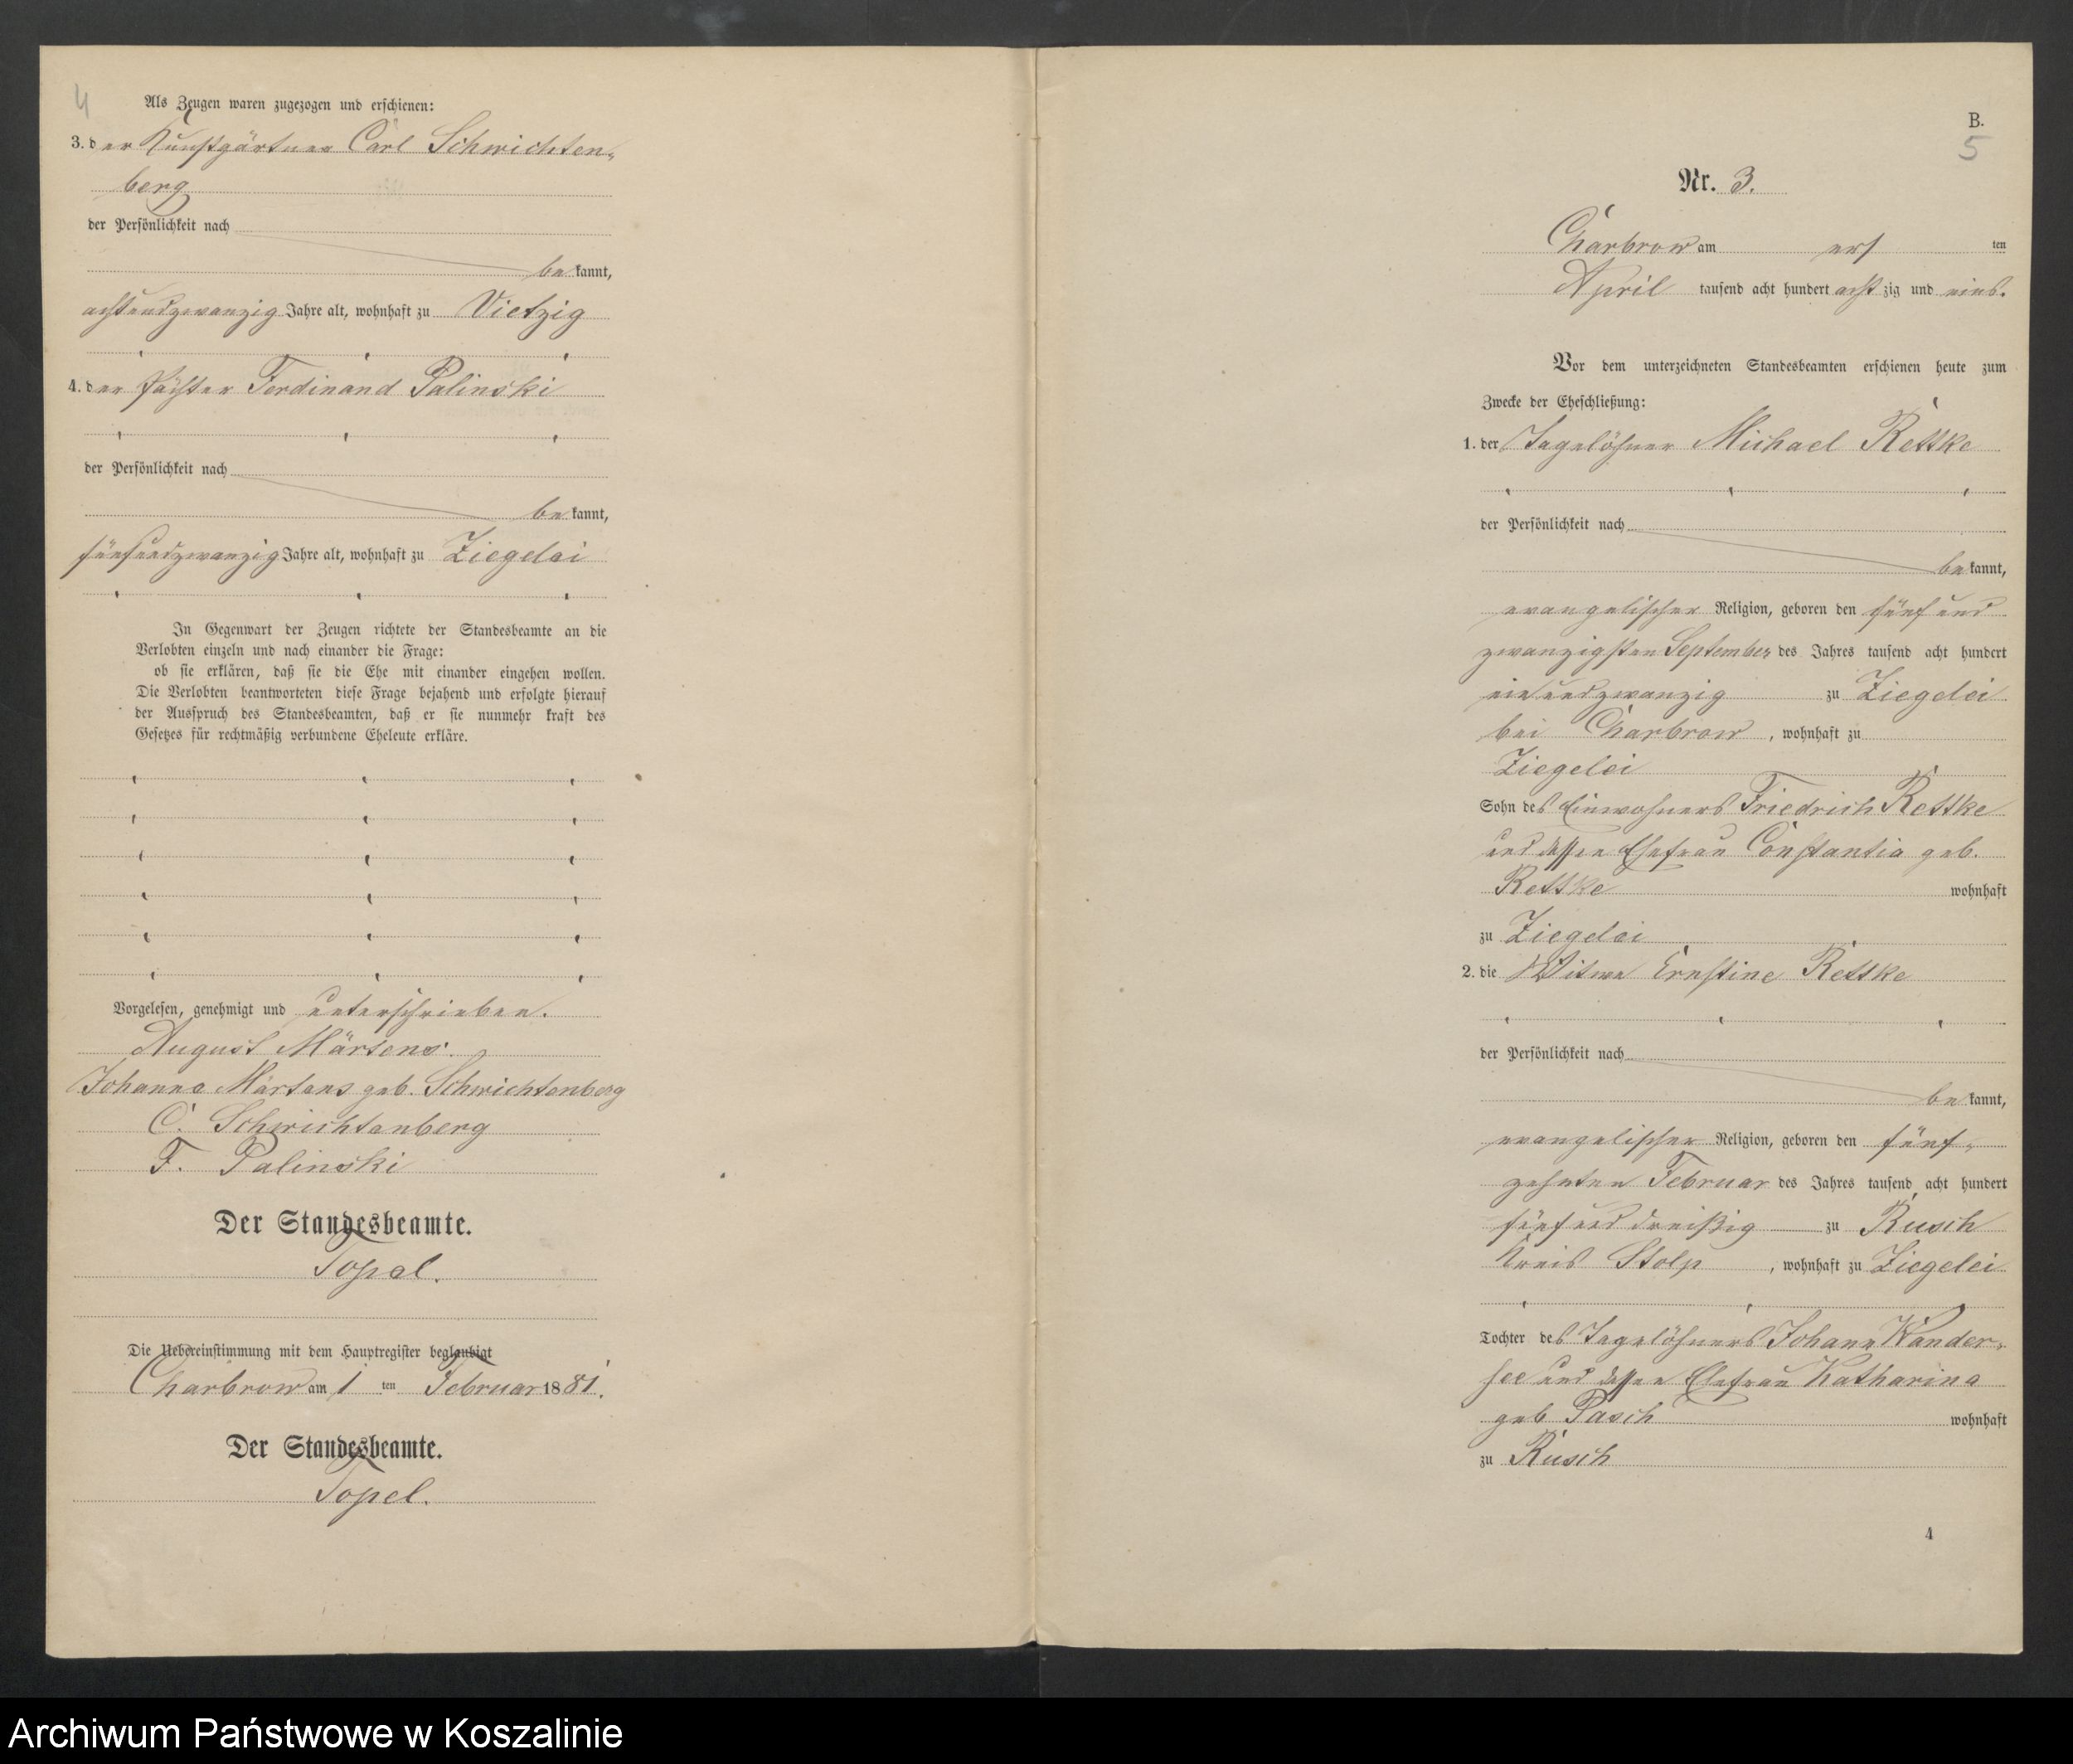 4
Als Zeugen waren zugezogen und erschienen:
3. der Kunstgärtner Carl Schwichten-
berg
der Persönlichkeit nach
bekannt,
achtundzwanzig Jahre alt, wohnhaft zu Vietzig
4. der Pächter Ferdinand Palinski
der Persönlichkeit nach
bekannt,
fünfundzwanzig Jahre alt, wohnhaft zu Ziegelei
In Gegenwart der Zeugen richtete der Standesbeamte an die
Verlobten einzeln und nach einander die Frage:
ob sie erklären, daß sie die Ehe mit einander eingehen wollen.
Die Verlobten beantworteten diese Frage bejahend und erfolgte hierauf
der Ausspruch des Standesbeamten, daß er sie nunmehr kraft des
Gesetzes für rechtmäßig verbundene Eheleute erkläre.
Vorgelesen, genehmigt und unterschrieben.
August Märtens.
Johanna Märtens geb. Schwichtenberg
C. Schwichtenberg
F. Palinski
Der Standesbeamte.
Topel.
Die Uebereinstimmung mit dem Hauptregister beglaubigt
Charbrow am 1 ten Februar 1881.
Der Standesbeamte.
Topel.
B.
5
Nr. 3.
Charbrow am ers ten
April tausend acht hundert achtzig und eins.
Vor dem unterzeichneten Standesbeamten erschienen heute zum
Zwecke der Eheschließung:
1. der Tagelöhner Michael Rettke
der Persönlichkeit nach
bekannt,
evangelischer Religion, geboren den fünf und
zwanzigsten September des Jahres tausend acht hundert
einundzwanzig zu Ziegelei
bei Charbrow, wohnhaft zu
Ziegelei
Sohn des Einwohners Friedrich Rettke
und dessen Ehefrau Constantia geb.
Rettke wohnhaft
zu Ziegelei
2. die Witwe Ernstine Rettke
der Persönlichkeit nach
bekannt,
evangelischer Religion, geboren den fünf-
zehnten Februar des Jahres tausend acht hundert
fünf und dreißig zu Rusch
Kreis Stolp, wohnhaft zu Ziegelei
Tochter des Tagelöhners Johann Wander-
see und dessen Ehefrau Katharina
geb Pasch wohnhaft
zu Rusch
4
Archiwum Państwowe w Koszalinie